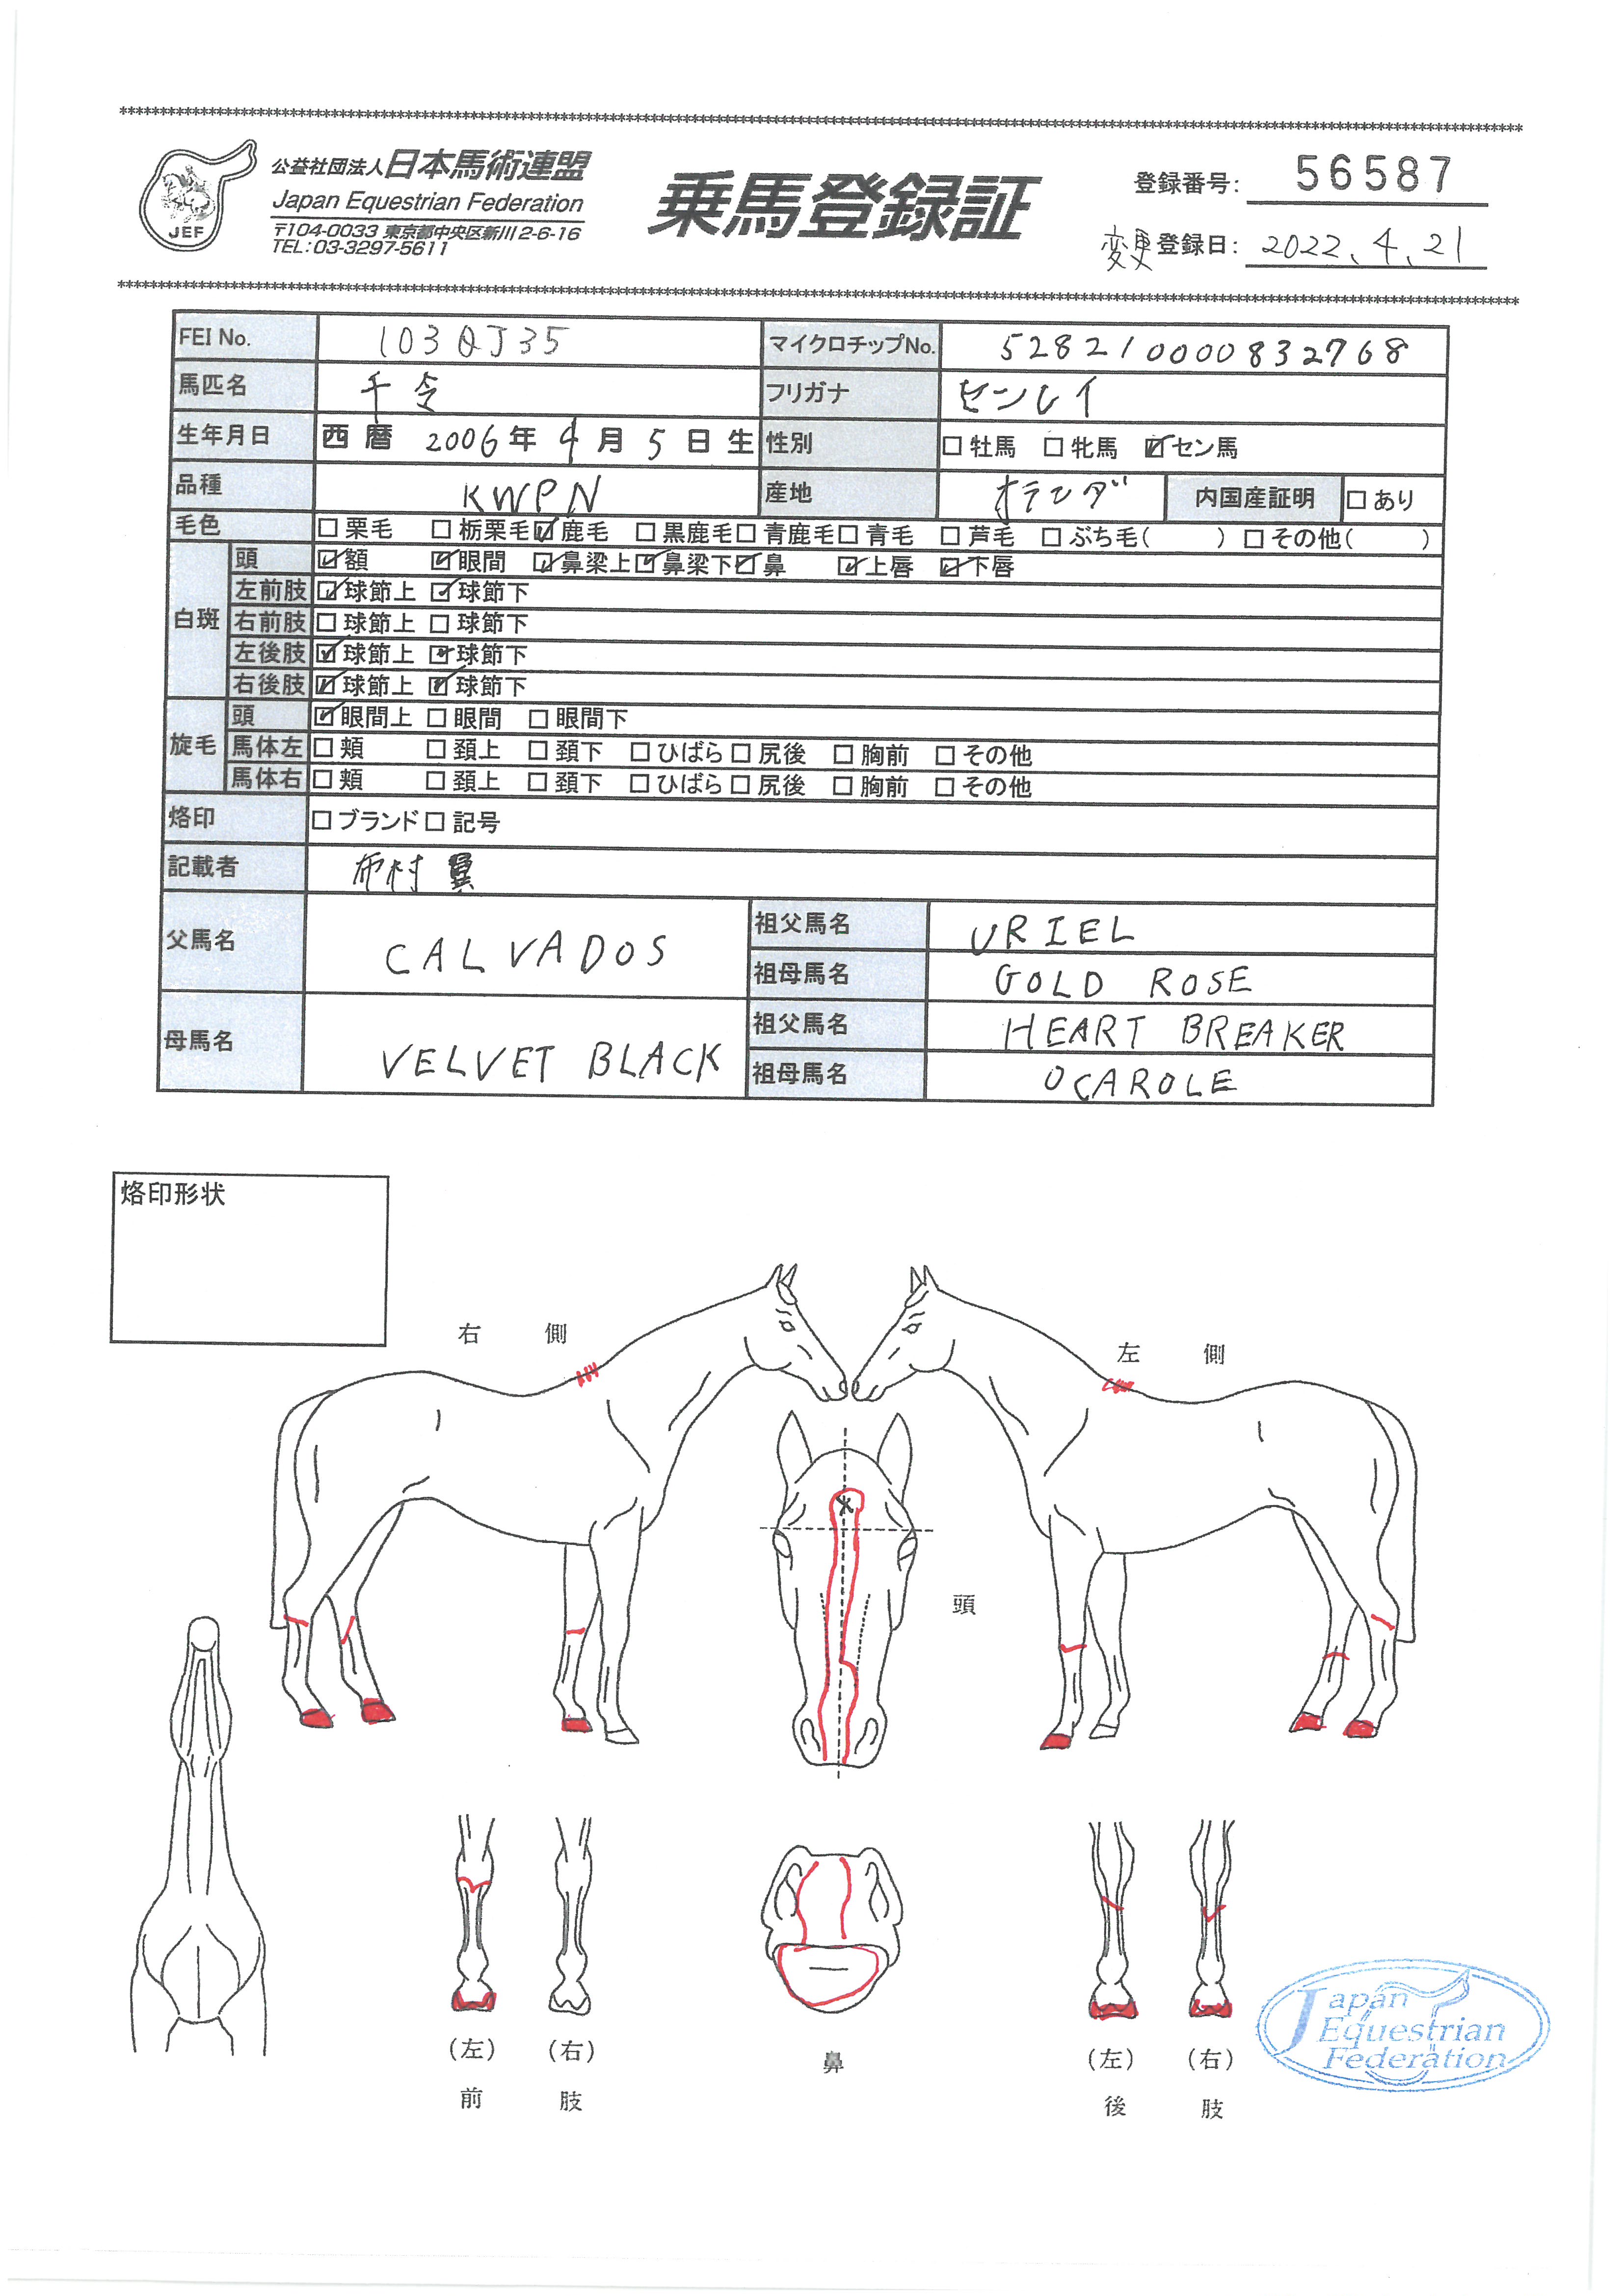 公益社団法人日本馬術連盟
Japan Equestrian Federation
〒104-0033 東京都中央区新川2-6-16
TEL:03-3297-5611
JEF
乗馬登録証
登録番号: 56587
変更登録日: 2022.4.21
FEI No. 103QJ35 マイクロチップNo. 528210000832768
馬匹名 千令 フリガナ センレイ
生年月日 西暦 2006年 4月 5日生 性別 □牡馬 □牝馬 ☑セン馬
品種 KWPN 産地 オランダ 内国産証明 □あり
毛色 □栗毛 □栃栗毛 ☑鹿毛 □黒鹿毛 □青鹿毛 □青毛 □芦毛 □ぶち毛( ) □その他( )
白斑 頭 ☑額 ☑眼間 ☑鼻梁上 ☑鼻梁下 ☑鼻 ☑上唇 ☑下唇
左前肢 ☑球節上 ☑球節下
右前肢 □球節上 □球節下
左後肢 ☑球節上 ☑球節下
右後肢 ☑球節上 ☑球節下
旋毛 頭 ☑眼間上 □眼間 □眼間下
馬体左 □頬 □頚上 □頚下 □ひばら □尻後 □胸前 □その他
馬体右 □頬 □頚上 □頚下 □ひばら □尻後 □胸前 □その他
烙印 □ブランド □記号
記載者 布村 翼
父馬名 CALVADOS 祖父馬名 URIEL
祖母馬名 GOLD ROSE
母馬名 VELVET BLACK 祖父馬名 HEART BREAKER
祖母馬名 OCAROLE
烙印形状
右 側
左 側
頭
(左) (右)
前 肢
鼻
(左) (右)
後 肢
Japan
Equestrian
Federation